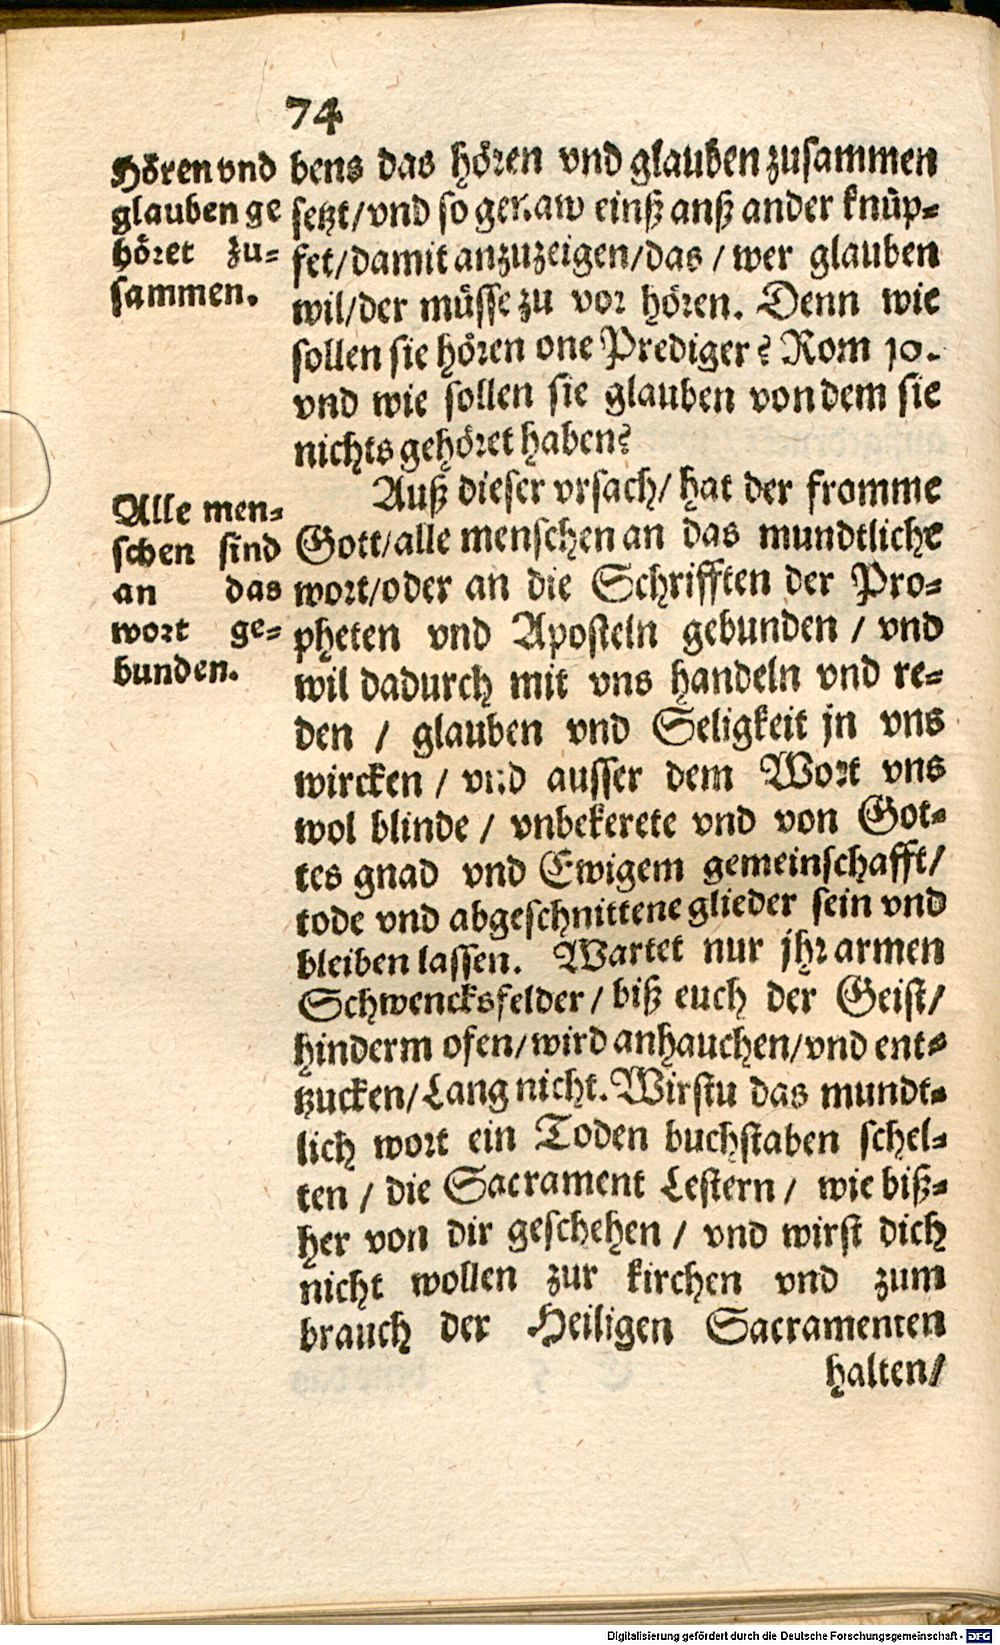 74
Hören vnd
glauben ge
höret zu-
sammen.
bens das hören vnd glauben zusammen
setzt/vnd so genaw einß anß ander knüp-
fet/damit anzuzeigen/das/wer glauben
wil/der müsse zu vor hören. Denn wie
sollen sie hören one Prediger? Rom 10.
vnd wie sollen sie glauben von dem sie
nichts gehöret haben?
Alle men-
schen sind
an das
wort ge-
bunden.
Auß dieser vrsach/ hat der fromme
Gott/alle menschen an das mundtliche
wort/oder an die Schrifften der Pro-
pheten vnd Aposteln gebunden / vnd
wil dadurch mit vns handeln vnd re-
den / glauben vnd Seligkeit jn vns
wircken / vnd ausser dem Wort vns
wol blinde / vnbekerete vnd von Got-
tes gnad vnd Ewigem gemeinschafft/
tode vnd abgeschnittene glieder sein vnd
bleiben lassen. Wartet nur jhr armen
Schwencksfelder / biß euch der Geist/
hinderm ofen/wird anhauchen/vnd ent-
tzucken/Lang nicht. Wirstu das mundt-
lich wort ein Toden buchstaben schel-
ten / die Sacrament Lestern / wie biß-
her von dir geschehen / vnd wirst dich
nicht wollen zur kirchen vnd zum
brauch der Heiligen Sacramenten
halten/
Digitalisierung gefördert durch die Deutsche Forschungsgemeinschaft - DFG